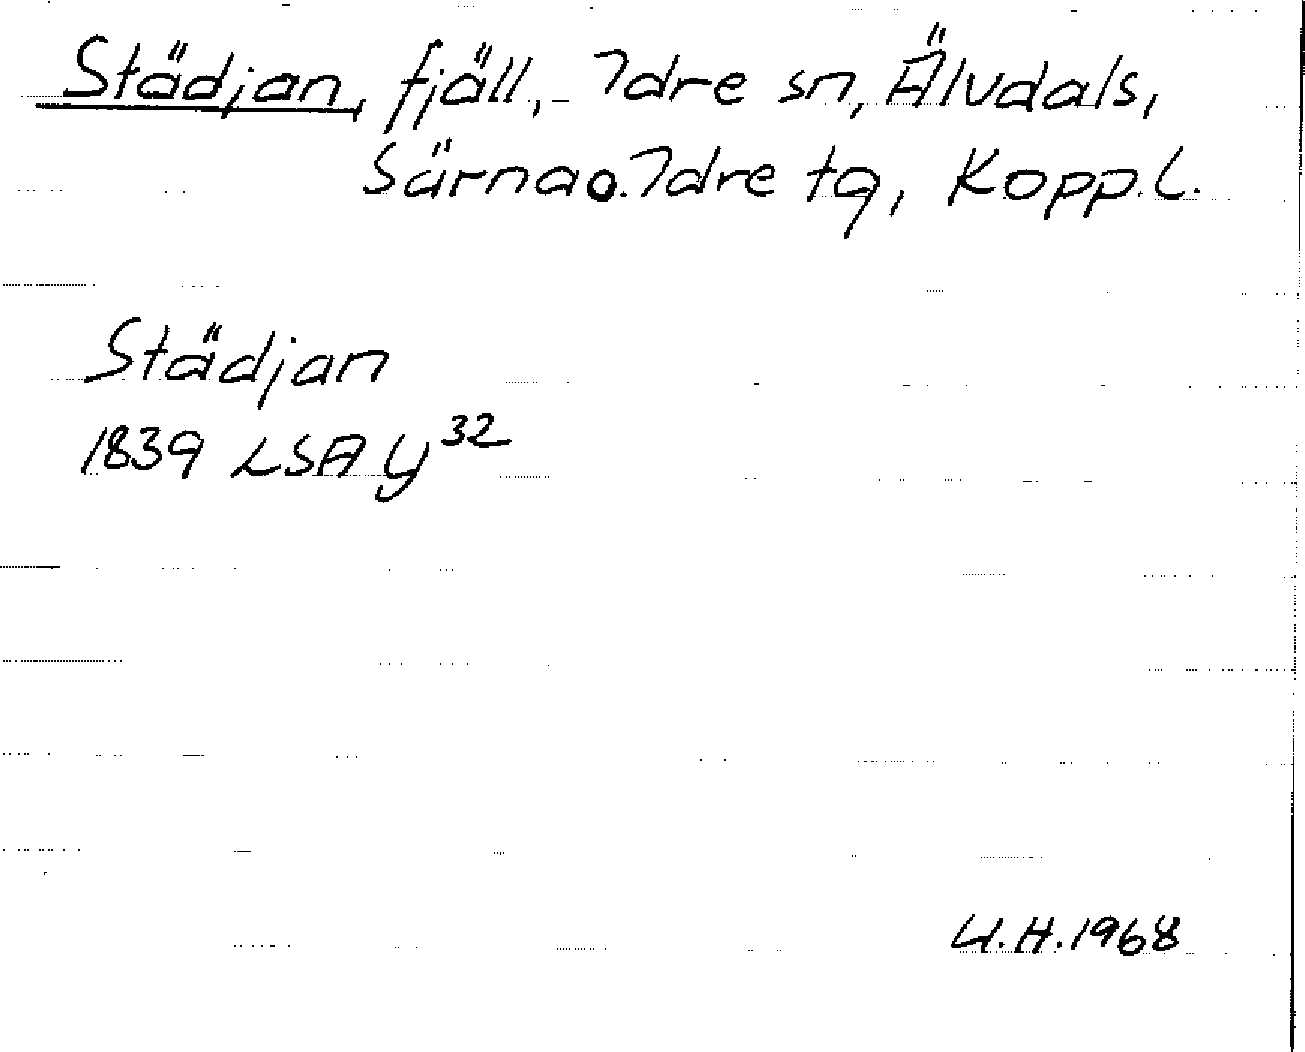 Städjan, fjäll, - Idre sn, Älvdals,
Särna o. Idre tg, Kopp. l.
Städjan
1839 LSA Y 32
U.H. 1968